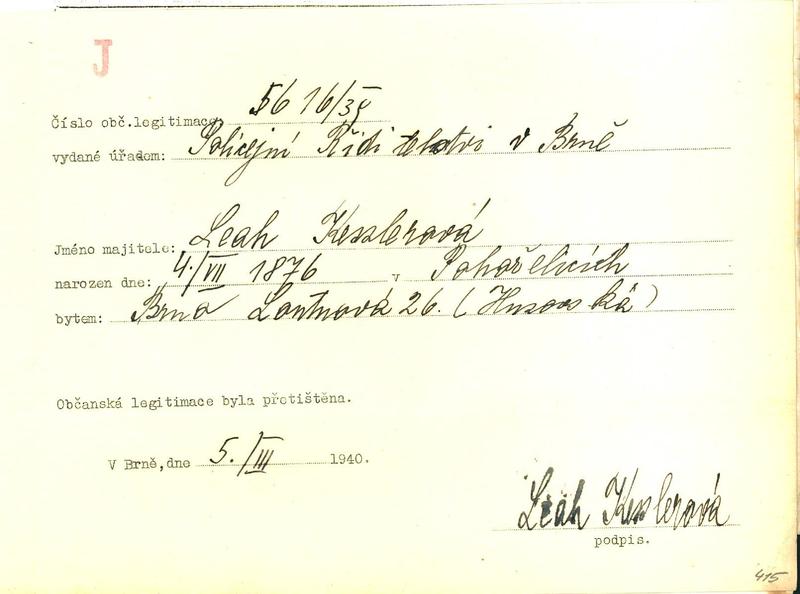 J
Číslo obč.legitimace: 5616/39
vydané úřadem: Policejní Ředitelství v Brně
Jméno majitele: Leah Kesslerová
narozen dne: 4./VII 1876 v Pohořelicích
bytem: Brno 26. (Husovská)
Občanská legitimace byla přetištěna.
V Brně,dne 5./III 1940.
Leah Kesslerová
podpis.
415